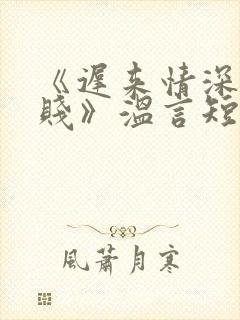 《遲来情深
賤》溫言短
風蕭月寒